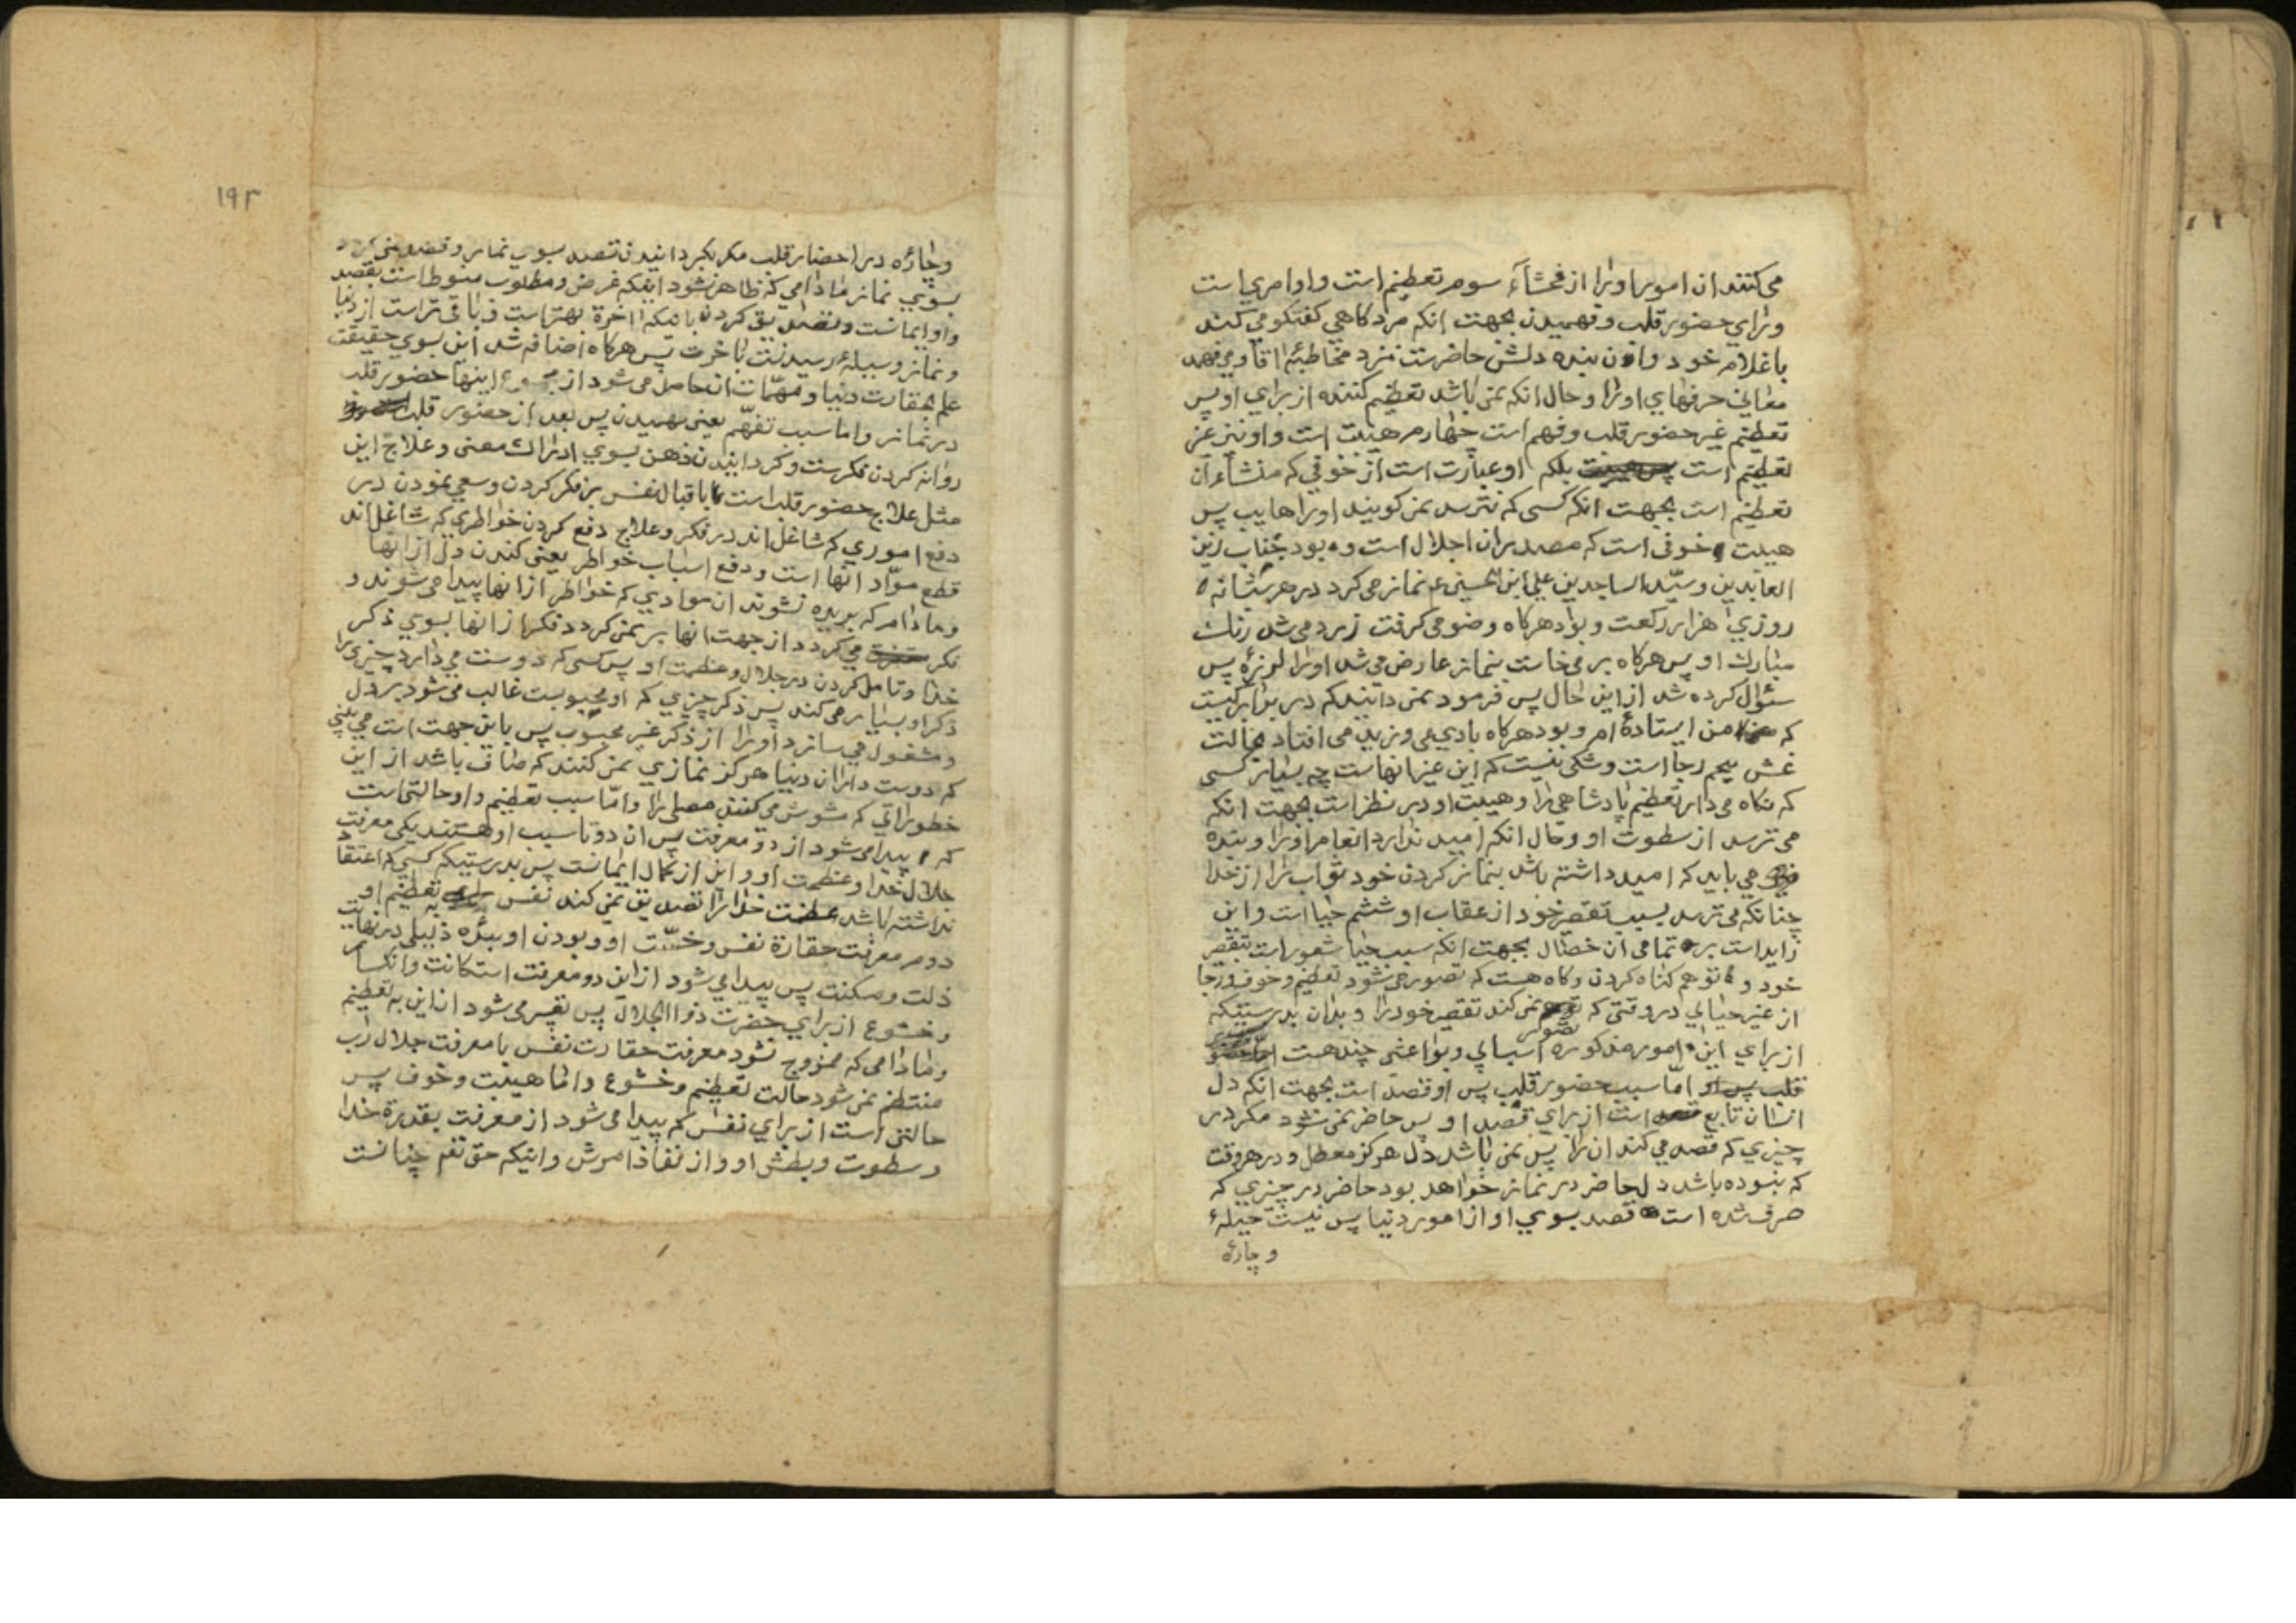 می‌کنند ان امور اورا از فحشآء سوم تعظیم است و او امری است
ورای حضور قلب و فهمیدن بجهت انکه مرد کاهی کفتکو می کند
با غلام خود و اون بنده دلش حاضرست نزد مخاطبهٔ اقا و می فهمد
معانی حرفهای اورا و حال انکه نمی باشد تعظیم کننده از برای او پس
تعظیم غیر حضور قلب و فهم است چهارم هیبت است و او نیز غیر
تعظیم است بلکه او عبارت است از خوفی که منشاء آن
تعظیم است بجهت انکه کسی که نترسد نمی کویند اورا هایب پس
هیبت خوفی است که مصدر ان اجلال است و بود جناب زین
العابدین و سیّد الساجدین علی ابن الحسین ع نماز می کرد در هر شبانه
روزی هزار رکعت و بود هرکاه وضو می کرفت زرد می شد رنك
مبارك او پس هرکاه بر می خاست بنماز عارض می شد اورا لرزه پس
سئوال کرده شد از این حال پس فرمود نمی دانید که در برابر کیست
که من ایستاده ام و بود هرکاه بادی می وزید می افتاد بحالت
غش پنجم رجا است و شکی نیست که این غیر انهاست چه بسیار کسی
که نکاه می دارد تعظیم پادشاهی را و هیبت او در نظر است بجهت انکه
می ترسد از سطوت او و حال انکه امید ندارد انعام اورا و بنده
می باید که امید داشته باشد بنماز کردن خود ثواب را از خدا
چنانکه می ترسد بسبب تقصیر خود از عقاب او ششم حیا است و این
زاید است بر تمامی ان خصال بجهت انکه سبب حیا شعور است بتقصیر
خود و توهم کناه کردن و کاه هست که تصور می شود تعظیم و خوف و رجا
از غیر حیایی در وقتی که تصور نمی کند تقصیر خود را و بدان بدرستیکه
از برای این امور مذکوره اسبابی و بواعثی چند هست
اما سبب حضور قلب پس او قصد است بجهت انکه دل
انسان تابع است از برای قصد او پس حاضر نمی شود مکر در
چیزی که قصد می کند ان را پس نمی باشد دل هرکز معطل و در هر وقت
که نبوده باشد دل حاضر در نماز خواهد بود حاضر در چیزی که
صرف شده است قصد بسوی او از امور دنیا پس نیست حیلهٔ
و چارهٔ
١٩٣
و چارهٔ در احضار قلب مکر بکردانیدن قصد بسوی نماز و قصد نمی کردد
بسوی نماز مادامی که ظاهر نشود اینکه غرض و مطلوب منوط است بقصد
و او ایمانست و تصدیق کردن باینکه اخرة بهتر است و باقی تر است از دنیا
و نماز وسیلهٔ رسیدنست باخرت پس هرکاه اضافه شد این بسوی حقیقت
علم بحقارت دنیا و مهمّات ان حاصل می شود از مجموع اینها حضور قلب
در نماز و اما سبب تفهّم یعنی فهمیدن پس بعد از حضور قلب
روانه کردن فکرست و کردانیدن ذهن بسوی ادراك معنی و علاج این
مثل علاج حضور قلب است با اقبال نفس بر فکر کردن و سعی نمودن در
دفع اموری که شاغل اند در فکر و علاج دفع کردن خواطری که شاغل اند
قطع موّاد انها است و دفع اسباب خواطر یعنی کندن دل از انها
و مادام که بریده نشوند ان موادی که خواطر از انها پیدا می شوند و
فکر می کردد از جهت انها بر نمی کردد فکر از انها بسوی ذکر
خدا و تامل کردن در جلال و عظمت او پس کسی که دوست می دارد چیزی را
ذکر او بسیار می کند پس ذکر چیزی که او محبوبست غالب می شود بر دل
و مشغول می سازد اورا از ذکر غیر محبوب پس باین جهت است می بینی
که دوست داران دنیا هرکز نمازی نمی کنند که صاف باشد از این
خطوراتی که مشوش می کنند مصلی را و امّا سبب تعظیم و او حالتی است
که پیدا می شود از دو معرفت پس ان دو تا سبب او هستند یکی معرفت
جلال خدا و عظمت او و این از کمال ایمانست پس بدرستیکه کسی که اعتقاد
نداشته باشد عظمت خدا را تصدیق نمی کند نفس به تعظیم او
دوم معرفت حقارة نفس و خسّت او و بودن او بندهٔ ذلیلی در نهایت
ذلت و مسکنت پس پیدا می شود از این دو معرفت استکانت و انکسار
و خشوع از برای حضرت ذو الجلال پس تعبیر می شود از این به تعظیم
و مادامی که ممزوج نشود معرفت حقارت نفس با معرفت جلال رب
منتظم نمی شود حالت تعظیم و خشوع و اما هیبت و خوف پس
حالتی است از برای نفس که پیدا می شود از معرفت بقدرة خدا
و سطوت و بطش او و از نفاذ امرش و اینکه حق تعم چنانست